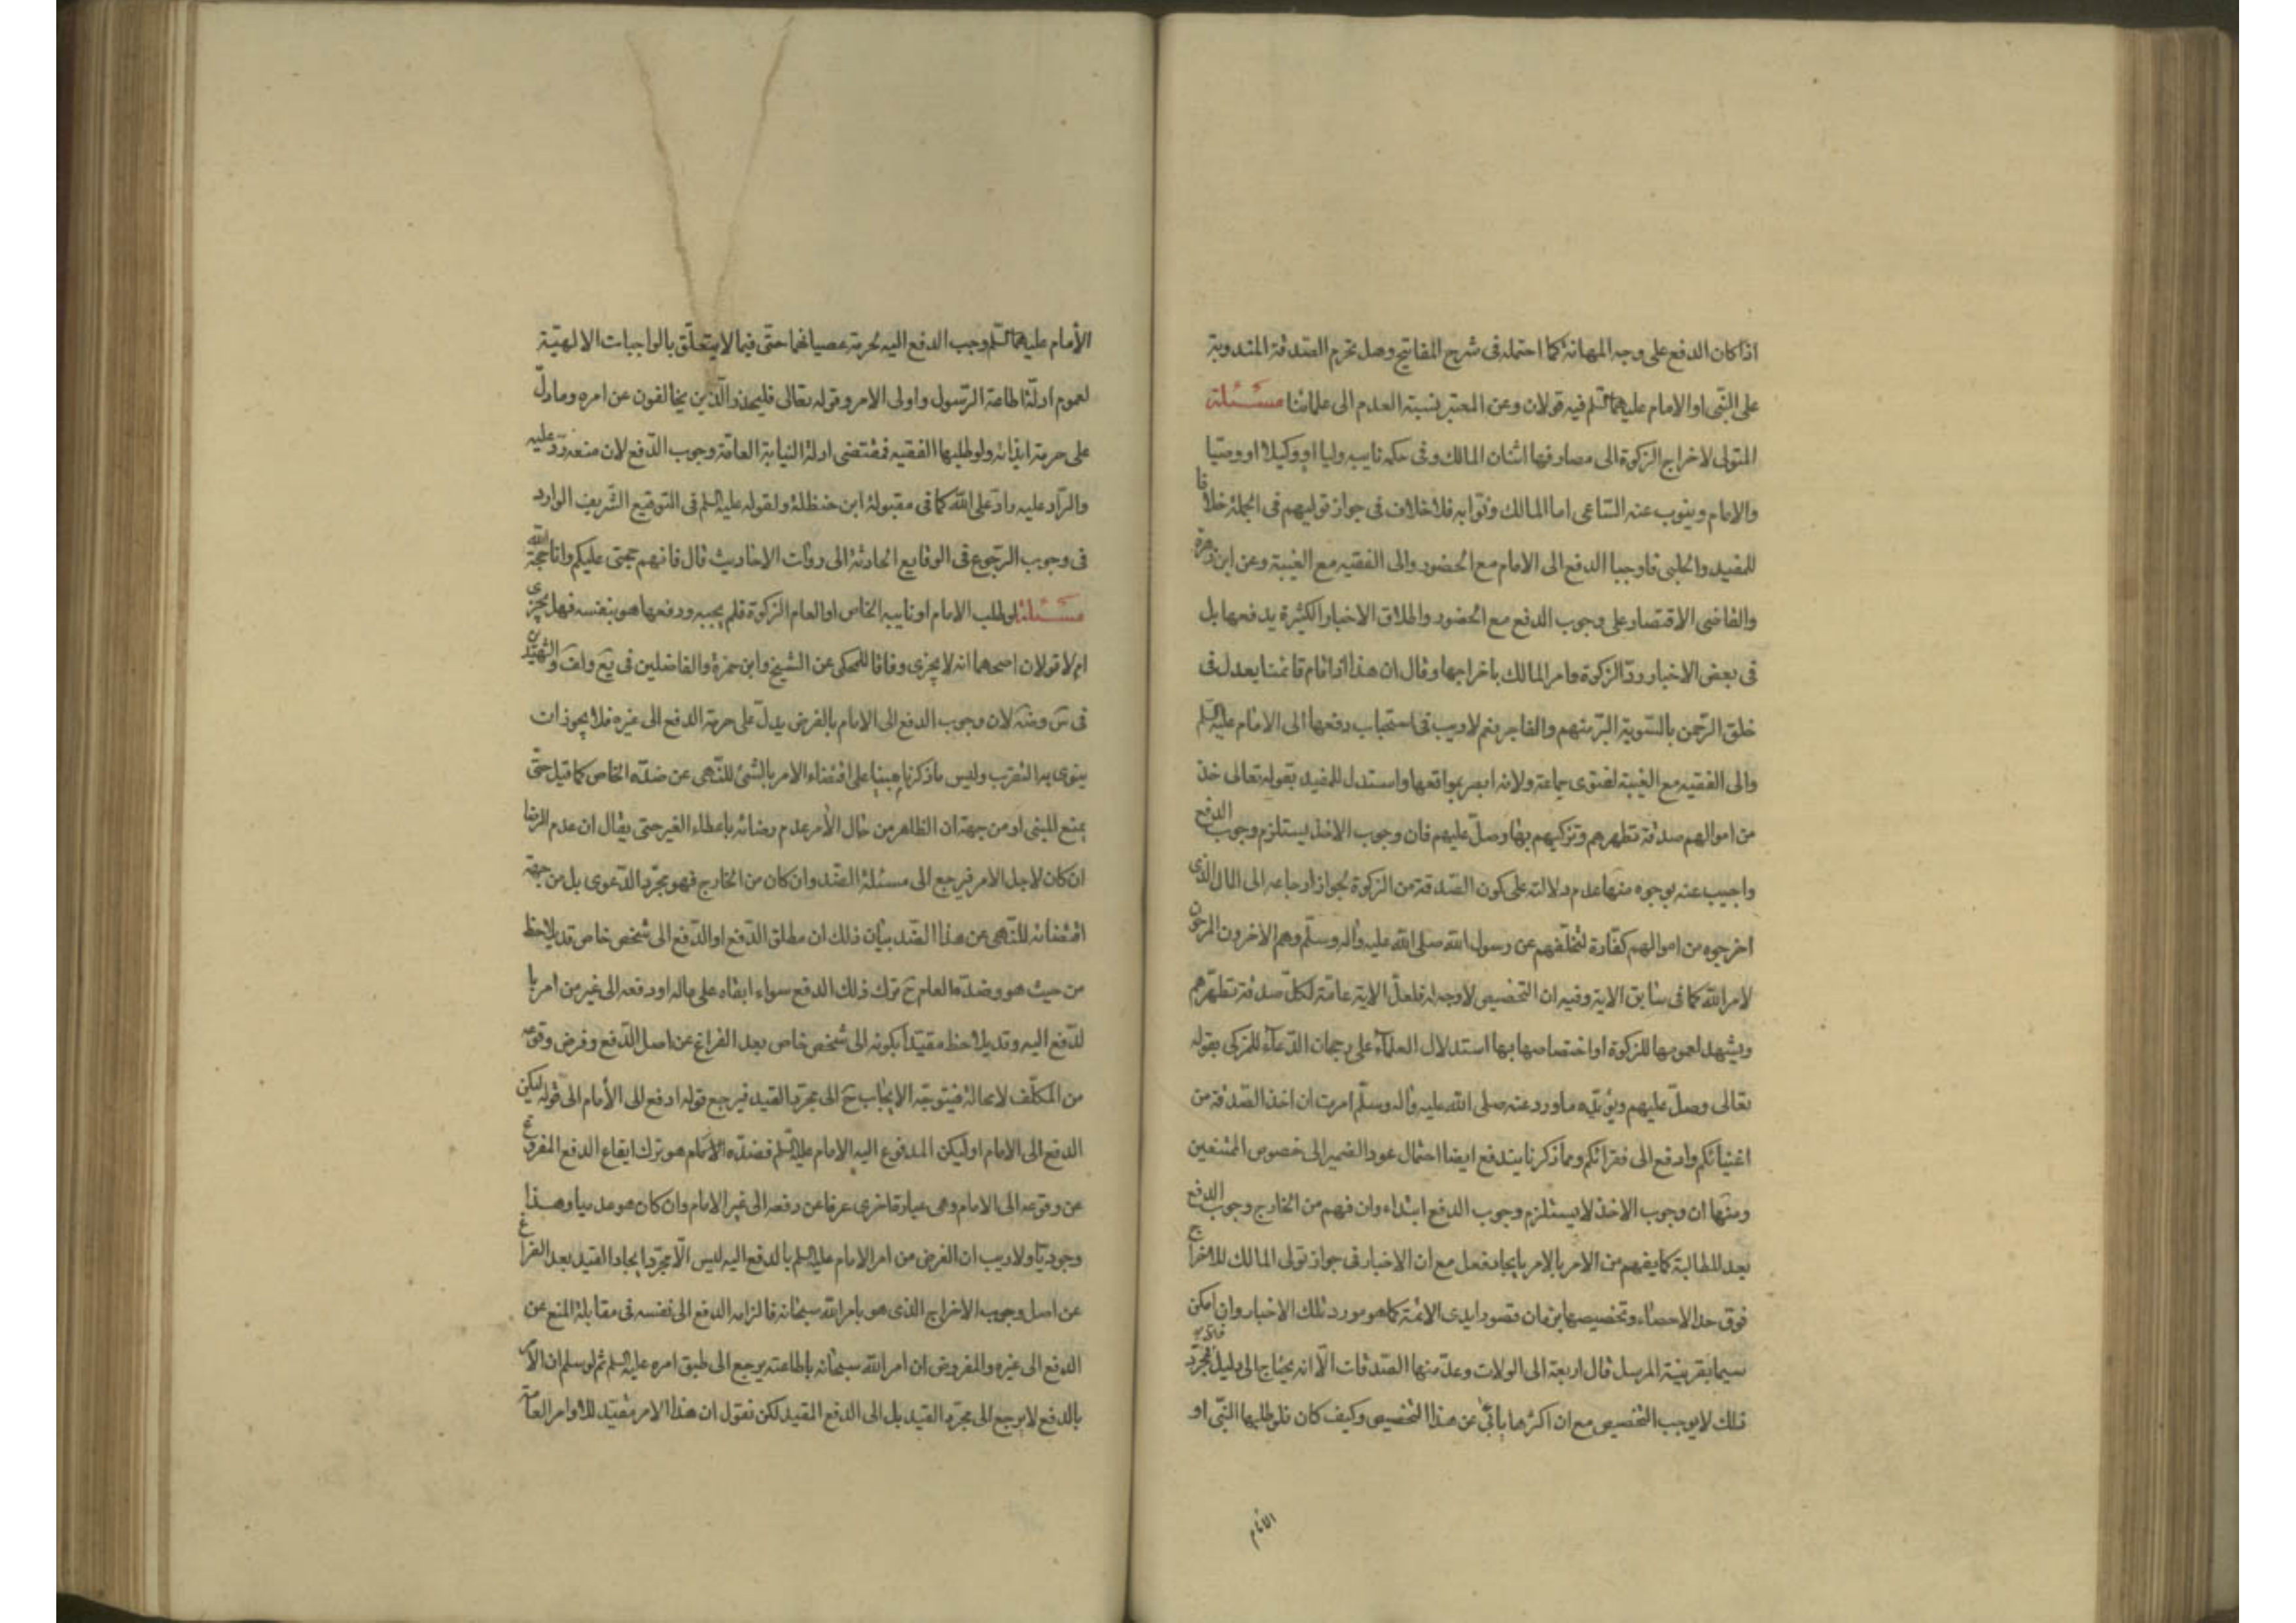 اذا كان الدفع على وجه المهانة كما احتمله فى شرح المفاتيح وهل تحرم الصدقة المندوبة
على النبى او الامام عليهما السلم فيه قولان وعن المعتبر نسبة العدم الى علمائنا مسئلة
المتولى لاخراج الزكوة الى مصارفها اثنان المالك وفى حكمه نايبه وليا او وكيلا او وصيا
والامام وينوب عنه الساعى اما المالك ونوابه فلا خلاف فى جواز توليهم فى الجملة خلافا
للمفيد والحلبى فاوجبا الدفع الى الامام مع الحضور والى الفقيه مع الغيبة وعن ابن زهرة
والقاضى الاقتصار على وجوب الدفع مع الحضور واطلاق الاخبار الكثيرة يدفعها بل
فى بعض الاخبار رد الزكوة وامر المالك باخراجها وقال ان هذا اذا قام قائمنا يعدل فى
خلق الرحمن بالسوية البر منهم والفاجر نعم لا ريب فى استحباب دفعها الى الامام عليه السلم
والى الفقيه مع الغيبة لفتوى جماعة ولانه ابصر بمواقعها واستدل للمفيد بقوله تعالى خذ
من اموالهم صدقة تطهرهم وتزكيهم بها وصل عليهم فان وجوب الاخذ يستلزم وجوب الدفع
واجيب عنه بوجوه منها عدم دلالته على كون الصدقة من الزكوة لجواز ارجاعه الى المال الذى
اخرجوه من اموالهم كفارة لتخلفهم عن رسول الله صلى الله عليه واله وسلم وهم الاخرون المرجون
لامر الله كما فى سابق الاية وفيه ان التخصيص لا وجه له فلعل الاية عامة لكل صدقة تطهرهم
ويشهد لعمومها للزكوة او اختصاصها بها استدلال العلماء على رجحان الدعاء للمزكى بقوله
تعالى وصل عليهم ويؤيده ما ورد عنه صلى الله عليه واله وسلم امرت ان اخذ الصدقة من
اغنيائكم وادفع الى فقرائكم ومما ذكرنا يندفع ايضا احتمال عود الضمير الى خصوص
ومنها ان وجوب الاخذ لا يستلزم وجوب الدفع ابتداء وان فهم من الخارج وجوب الدفع
بعد المطالبة كما يفهم من الامر بالامر بايجاد فعل مع ان الاخبار فى جواز تولى المالك للاخراج
فوق حد الاحصاء وتخصيصها بزمان قصور ايدى الائمة كما هو مورد تلك الاخبار وان امكن
سيما بقرينة المرسل قال اربعة الى الولات وعد منها الصدقات الا انه يحتاج الى دليل فمجرد
ذلك لا يوجب التخصيص مع ان اكثرها يابى عن هذا التخصيص وكيف كان فلو طلبها النبى او
الامام
الأمام عليهما السلم وجب الدفع اليه لحرمة عصيانهما حتى فيما لا يتعلق بالواجبات الالهية
لعموم ادلة اطاعة الرسول واولى الامر وقوله تعالى فليحذر الذين يخالفون عن امره وما دل
على حرمة ايذائه ولو طلبها الفقيه فمقتضى ادلة النيابة العامة وجوب الدفع لان منعه رد عليه
والراد عليه راد على الله كما فى مقبولة ابن حنظلة ولقوله عليه السلم فى التوقيع الشريف الوارد
فى وجوب الرجوع فى الوقايع الحادثة الى روات الاحاديث قال فانهم حجتى عليكم وانا حجة الله
مسئلة لو طلب الامام او نايبه الخاص او العام الزكوة فلم يجبه ودفعها هو بنفسه فهل يجزى
ام لا قولان اصحهما انه لا يجزى وفاقا للمحكى عن الشيخ وابن حمزة والفاضلين فى يع ولف والشهيدين
فى س وضه لان وجوب الدفع الى الامام بالفرض يدل على حرمة الدفع الى غيره فلا يجوز ان
ينوى به التقرب وليس ما ذكرنا مبنيا على اقتضاء الامر بالشئ للنهى عن ضده الخاص كما قيل حتى
يمنع المبنى او من جهة ان الظاهر من حال الأمر عدم رضائه باعطاء الغير حتى يقال ان عدم الرضا
ان كان لاجل الامر فيرجع الى مسئلة الضد وان كان من الخارج فهو مجرد الدعوى بل من جهة
اقتضائه للنهى عن هذا الضد بيان ذلك ان مطلق الدفع او الدفع الى شخص خاص قد يلاحظ
من حيث هو وضده العام ح ترك ذلك الدفع سواء ابقاه على ماله او دفعه الى غير من امر با
لدفع اليه وقد يلاحظ مقيدا بكونه الى شخص خاص بعد الفراغ عن اصل الدفع وفرض وقوعه
من المكلف لا محالة فيتوجه الايجاب ح الى مجرد القيد فيرجع قوله ادفع الى الأمام الى قوله ليكن
الدفع الى الامام او ليكن المدفوع اليه الامام عليه السلم فضده العام هو ترك ايقاع الدفع المفروغ
عن وقوعه الى الامام وهى عبارة اخرى عرفا عن دفعه الى غير الامام وان كان هو عدميا وهذا
وجوديا ولا ريب ان الغرض من امر الامام عليه السلم بالدفع اليه ليس الا مجرد ايجاد القيد بعد الفراغ
عن اصل وجوب الاخراج الذى هو بامر الله سبحانه فالزامه الدفع الى نفسه فى مقابلة المنع عن
الدفع الى غيره والمفروض ان امر الله سبحانه باطاعته يرجع الى طبق امره عليه السلم ثم لو سلم ان الامر
بالدفع لا يرجع الى مجرد القيد بل الى الدفع المقيد لكن نقول ان هذا الامر مقيد للاوامر العامة